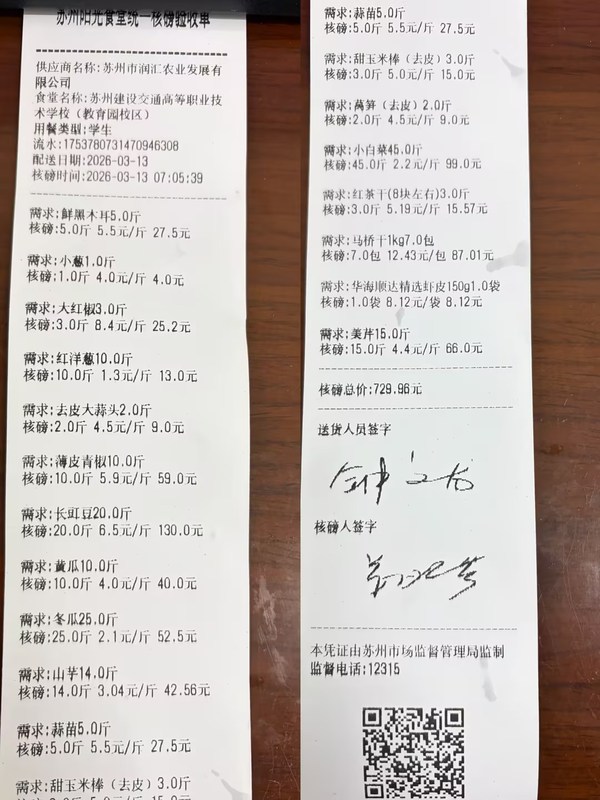 苏州阳光食堂统一核磅验收单
供应商名称:苏州市润汇农业发展有
限公司
食堂名称:苏州建设交通高等职业技
术学校（教育园校区）
用餐类型:学生
流水:1753780731470946308
配送日期:2026-03-13
核磅时间:2026-03-13 07:05:39
需求:鲜黑木耳5.0斤
核磅:5.0斤 5.5元/斤 27.5元
需求:小葱1.0斤
核磅:1.0斤 4.0元/斤 4.0元
需求:大红椒3.0斤
核磅:3.0斤 8.4元/斤 25.2元
需求:红洋葱10.0斤
核磅:10.0斤 1.3元/斤 13.0元
需求:去皮大蒜头2.0斤
核磅:2.0斤 4.5元/斤 9.0元
需求:薄皮青椒10.0斤
核磅:10.0斤 5.9元/斤 59.0元
需求:长豇豆20.0斤
核磅:20.0斤 6.5元/斤 130.0元
需求:黄瓜10.0斤
核磅:10.0斤 4.0元/斤 40.0元
需求:冬瓜25.0斤
核磅:25.0斤 2.1元/斤 52.5元
需求:山芋14.0斤
核磅:14.0斤 3.04元/斤 42.56元
需求:蒜苗5.0斤
核磅:5.0斤 5.5元/斤 27.5元
需求:甜玉米棒（去皮）3.0斤
核磅:3.0斤 5.0元/斤 15.0元
需求:蒜苗5.0斤
核磅:5.0斤 5.5元/斤 27.5元
需求:甜玉米棒（去皮）3.0斤
核磅:3.0斤 5.0元/斤 15.0元
需求:莴笋（去皮）2.0斤
核磅:2.0斤 4.5元/斤 9.0元
需求:小白菜45.0斤
核磅:45.0斤 2.2元/斤 99.0元
需求:红茶干(8块左右)3.0斤
核磅:3.0斤 5.19元/斤 15.57元
需求:马桥干1kg7.0包
核磅:7.0包 12.43元/包 87.01元
需求:华海顺达精选虾皮150g1.0袋
核磅:1.0袋 8.12元/袋 8.12元
需求:美芹15.0斤
核磅:15.0斤 4.4元/斤 66.0元
核磅总价:729.96元
送货人员签字
核磅人签字
本凭证由苏州市场监督管理局监制
监督电话:12315